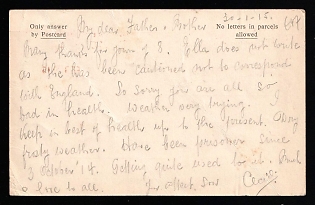 Only answer
by Postcard
No letters in parcels
allowed
My dear Father & Mother
Many thanks for yours of 8. Ella does not write
as she has been cautioned not to correspond
with England. So sorry you are all so
bad in health. Weather very trying. I
keep in best of health up to the present. Very
frosty weather. Have been prisoner since
3 October '14. Getting quite used to it. Best
o love to all. Yr affect. Son
Cecil